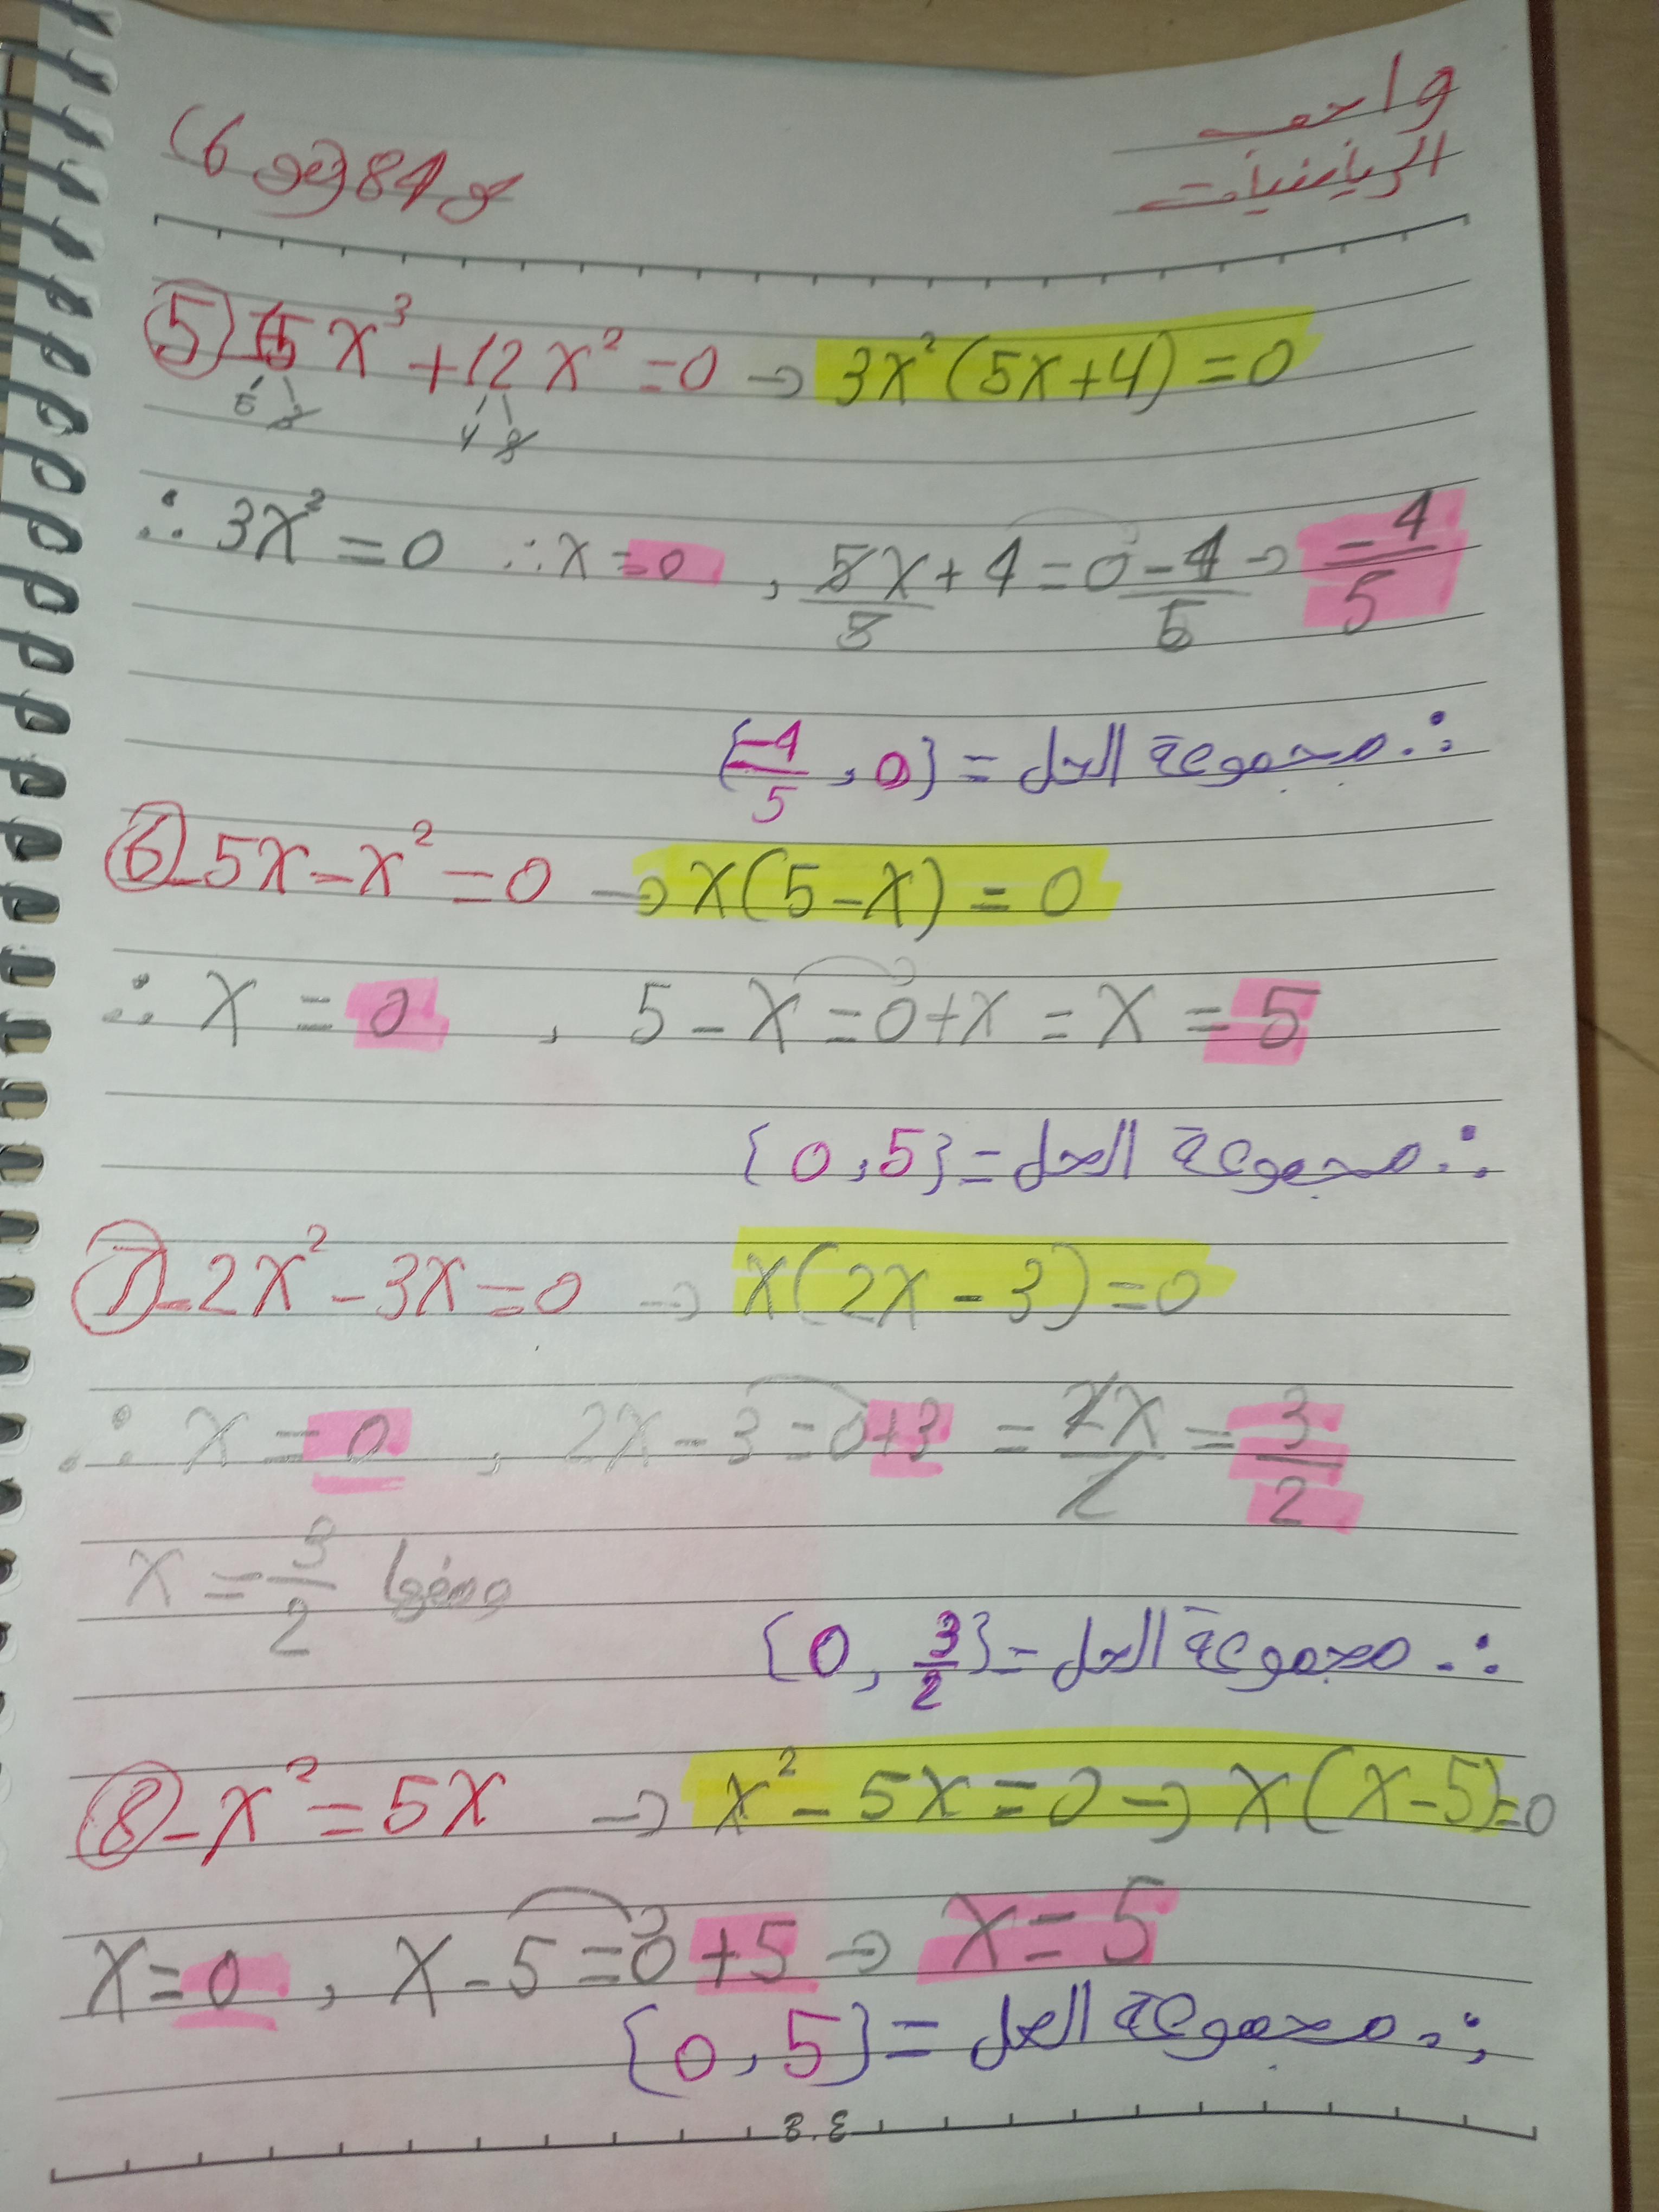 واجب
الرياضيات
ص 84
5) 15x³ + 12x² = 0 → 3x² (5x+4) = 0
5 3 4 3
∴ 3x² = 0 ∴ x = 0 , 5x/5 + 4 = 0 -4/5 → -4/5
∴ مجموعة الحل = {-4/5 , 0}
6) - 5x - x² = 0 → x(5-x) = 0
∴ x = 0 , 5 - x = 0 + x = x = 5
∴ مجموعة الحل = {0 , 5}
7) - 2x² - 3x = 0 → x(2x - 3) = 0
∴ x = 0 , 2x - 3 = 0 + 3 = 2x/2 = 3/2
x = 3/2
∴ مجموعة الحل = {0 , 3/2}
8) - x² = 5x → x² - 5x = 0 → x(x-5) = 0
x = 0 , x - 5 = 0 + 5 → x = 5
∴ مجموعة الحل = {0 , 5}